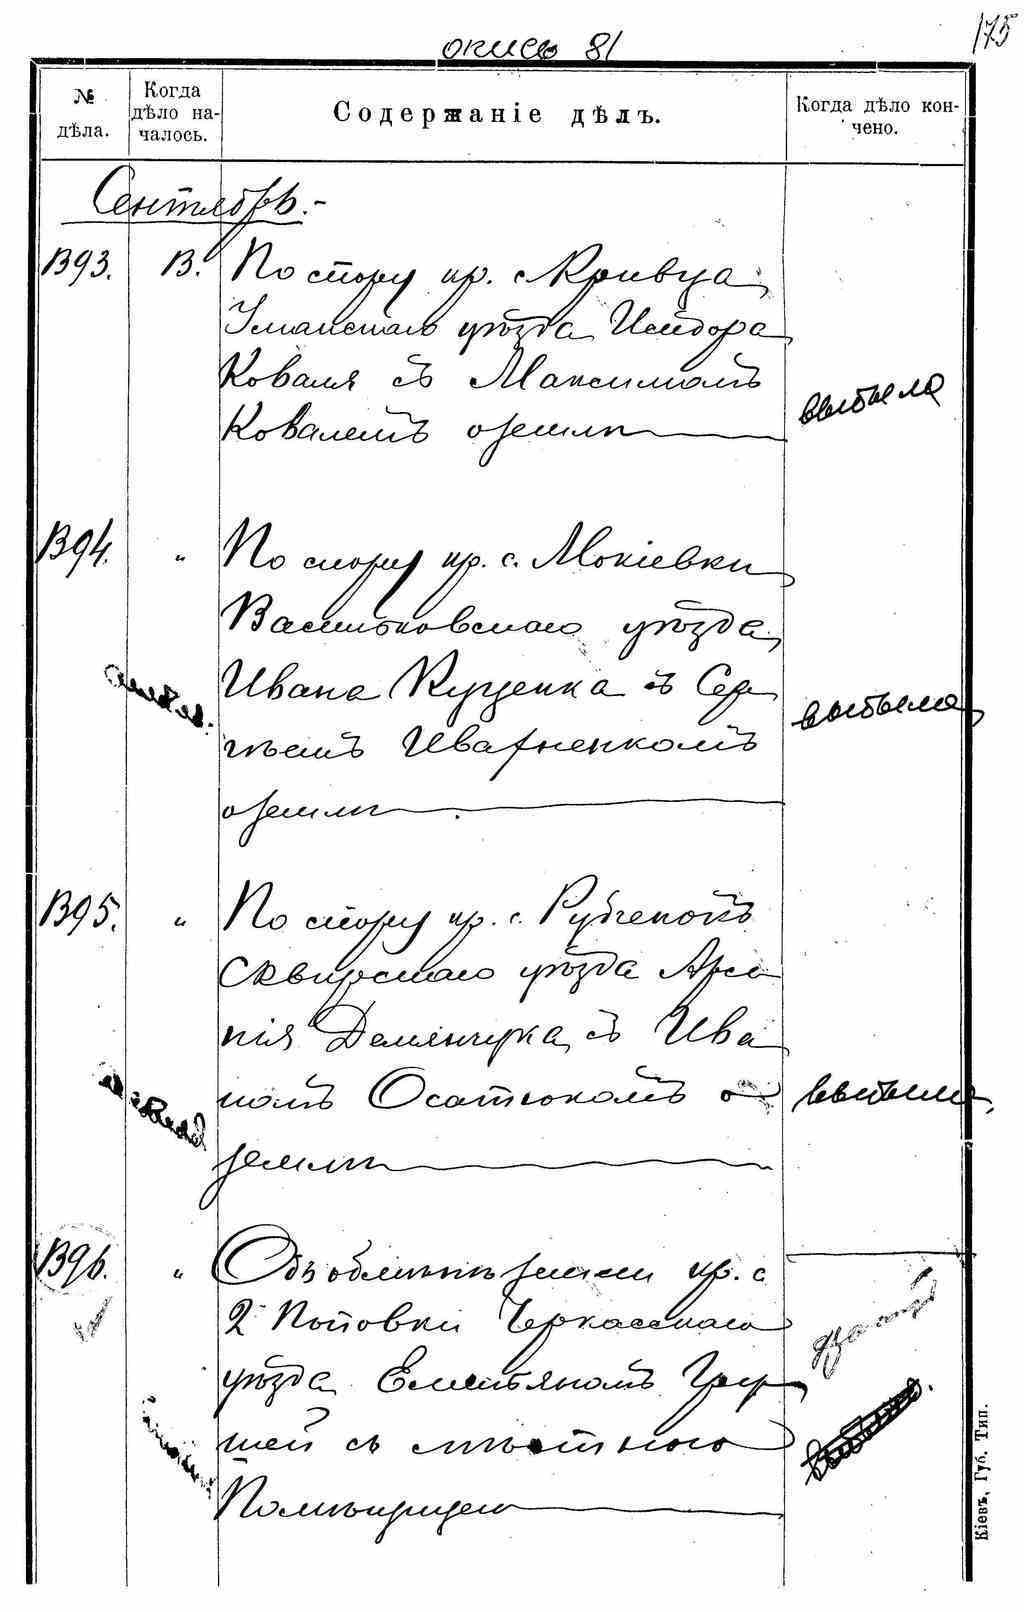 175
опись 81
№ дѣла.
Когда дѣло началось.
Содержаніе дѣлъ.
Когда дѣло кончено.
Сентябрь.-
1393. 13. По спору кр. с Кривца
Уманскаго уѣзда Исидора
Коваля съ Максимомъ
Ковалемъ о землѣ
выбыла
1394. " По спору кр. с. Мокіевки
Васильковскаго уѣзда
Ивана Куценка съ Сер
гѣемъ
о землѣ
выбыла
1395. " По спору кр. с.
Сквирскаго уѣзда Арсе
нія Демянчука съ Ива
номъ Осатюкомъ о
землѣ
выбыла
1396. " Объ обмѣнѣ земли кр. с
2 Поповки Черкасскаго
уѣзда Емельяномъ
шей съ мѣстнаго
Помѣщицею
Кіевъ, Губ. Тип.